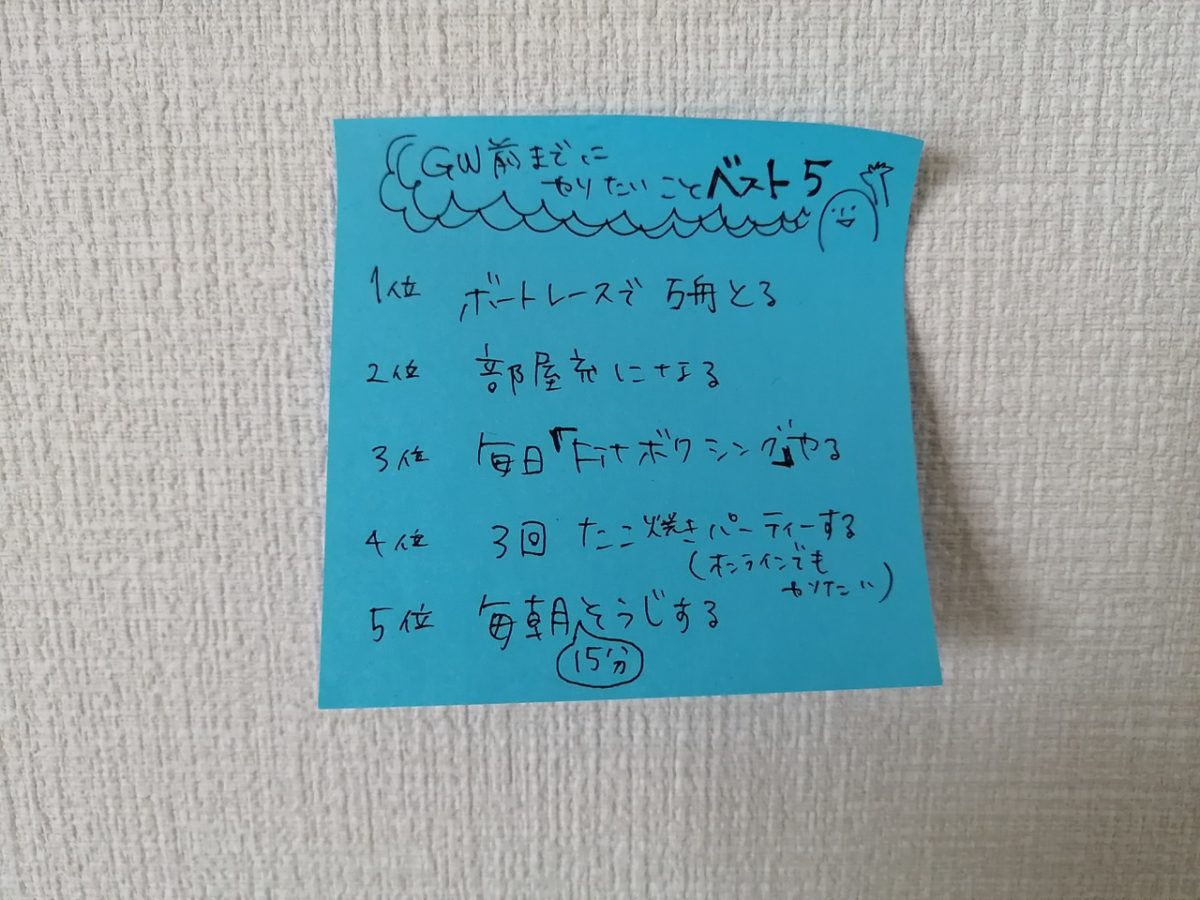 GW前までに
やりたいことベスト5
1位 ボートレースで万舟とる
2位 部屋充になる
3位 毎日「Fitボクシング」やる
4位 3回たこ焼きパーティーする
(オンラインでも
やりたい)
5位 毎朝そうじする
15分